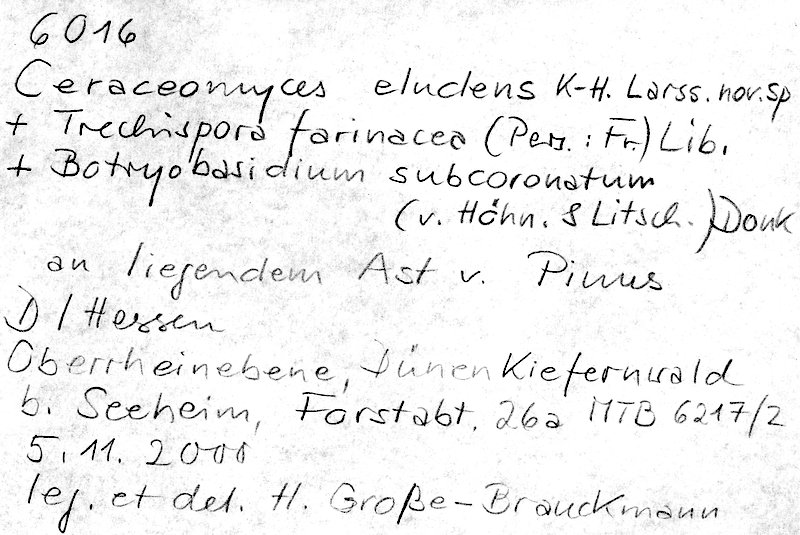 6016
Ceraceomyces eludens K-H. Larss. nov. sp
+ Trechispora farinacea (Pers. : Fr.) Lib.
+ Botryobasidium subcoronatum
(v. Höhn. & Litsch.) Donk
an liegendem Ast v. Pinus
D / Hessen
Oberrheinebene, Dünenkiefernwald
b. Seeheim, Forstabt. 26a MTB 6217/2
5.11.2000
leg. et det. H. Große-Brauckmann